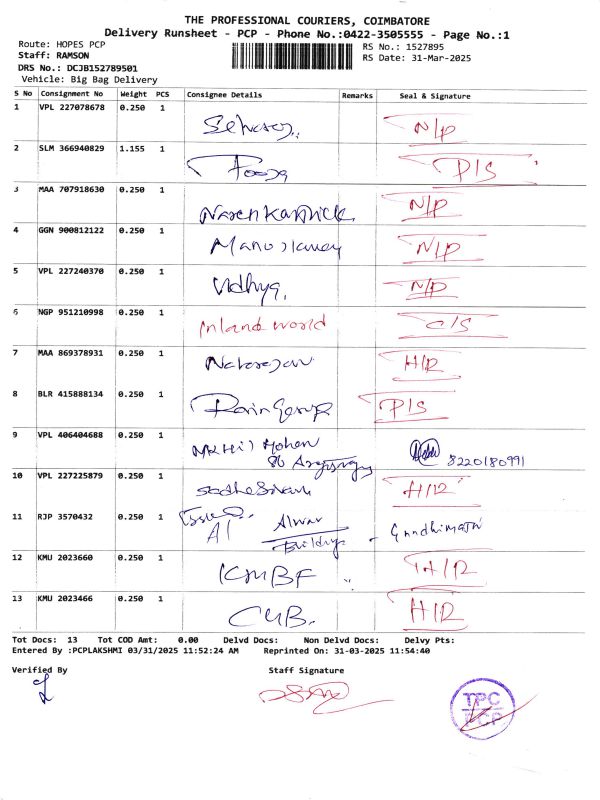 THE PROFESSIONAL COURIERS, COIMBATORE
Delivery Runsheet - PCP - Phone No.:0422-3505555 - Page No.:1
Route: HOPES PCP
RS No.: 1527895
Staff: RAMSON
RS Date: 31-Mar-2025
DRS No.: DCJB152789501
Vehicle: Big Bag Delivery
S No Consignment No Weight PCS Consignee Details Remarks Seal & Signature
1 VPL 227078678 0.250 1 N/P
2 SLM 366940829 1.155 1 Pooja P/S
3 MAA 707918630 0.250 1 Naren Karthick N/P
4 GGN 900812122 0.250 1 N/P
5 VPL 227240370 0.250 1 Vidhya. N/P
6 NGP 951210998 0.250 1 Inland world C/S
7 MAA 869378931 0.250 1 Natarajan H/R
8 BLR 415888134 0.250 1 P/S
9 VPL 406404688 0.250 1 Mohan 8220180991
86
10 VPL 227225879 0.250 1 H/R
11 RJP 3570432 0.250 1 Alwar - Gandhimathi
A1
12 KMU 2023660 0.250 1 KMBF H/R
13 KMU 2023466 0.250 1 CUB. H/R
Tot Docs: 13 Tot COD Amt: 0.00 Delvd Docs: Non Delvd Docs: Delvy Pts:
Entered By :PCPLAKSHMI 03/31/2025 11:52:24 AM Reprinted On: 31-03-2025 11:54:40
Verified By Staff Signature
TPC
PCP